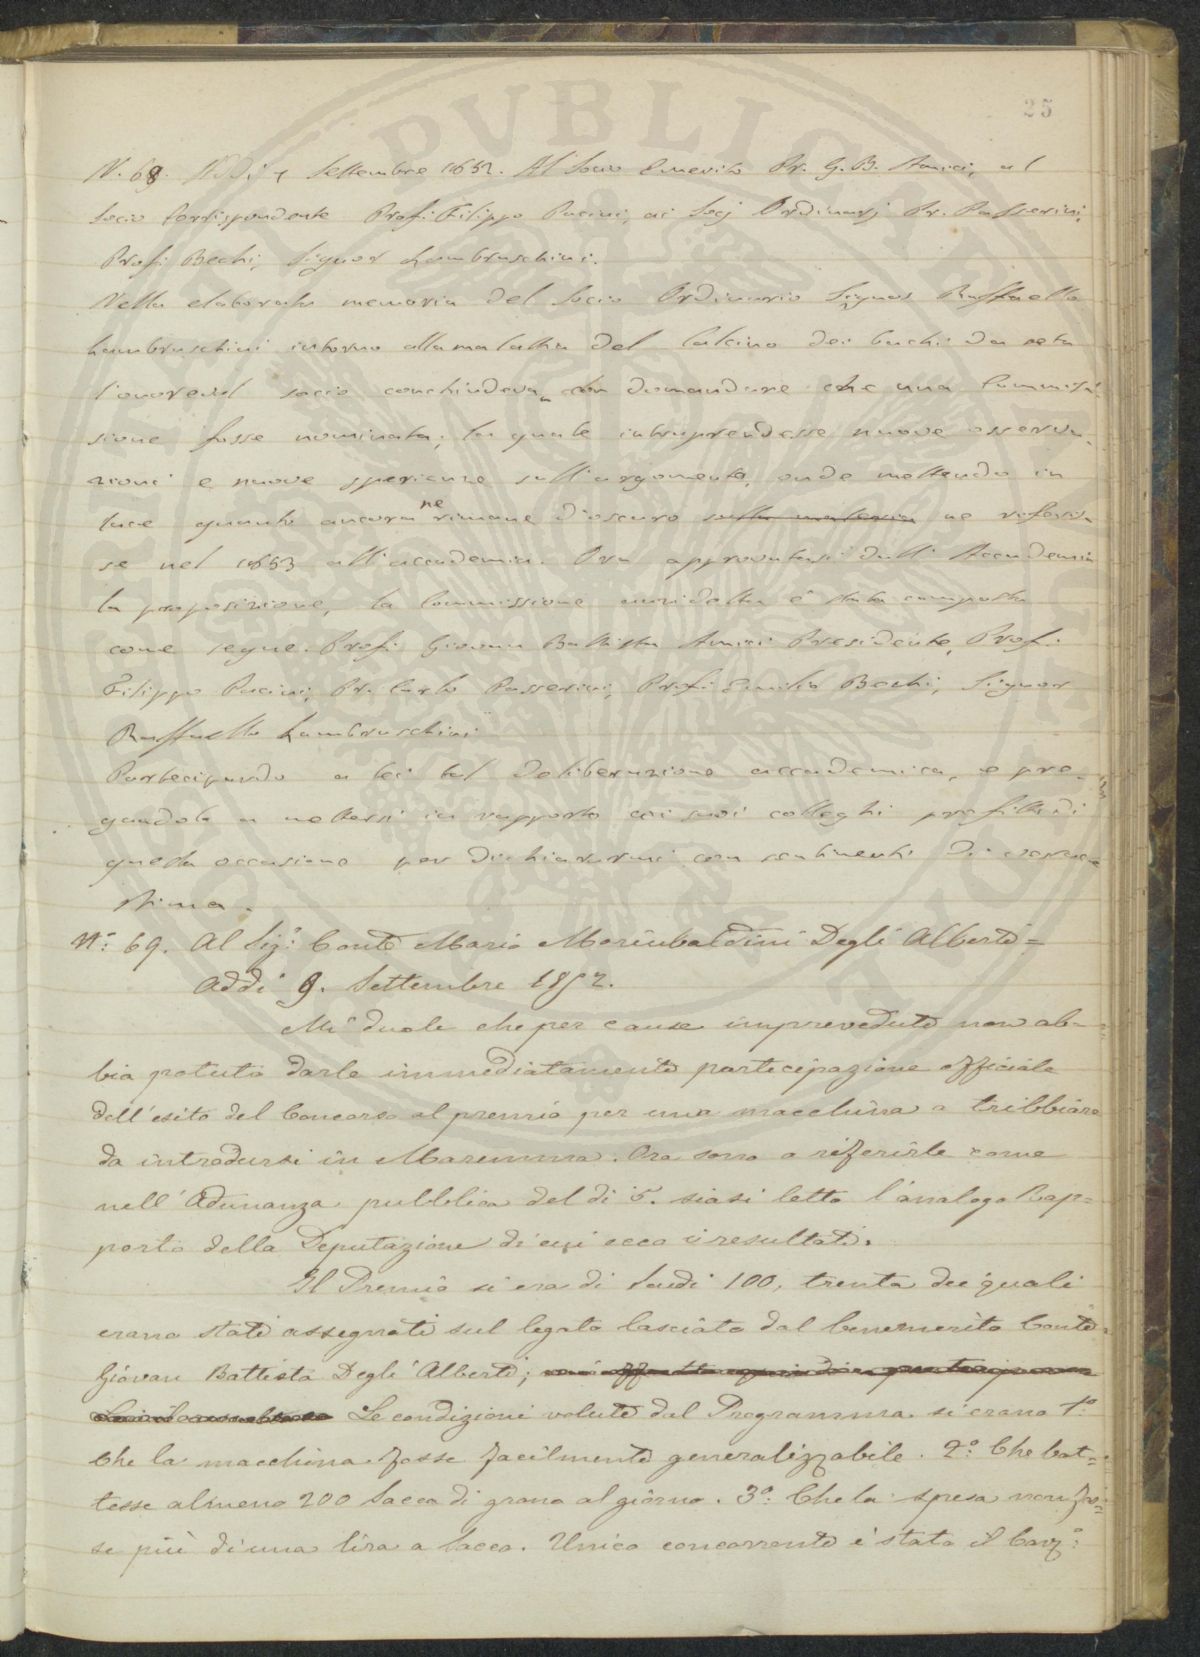 25
N. 68. Addì 9 Settembre 1852. Al Socio Emerito Pr. G. B. Amici, al
Socio Corrispondente Prof. Filippo Pacini, ai Socj Ordinarj Dr. Passerini,
Prof. Bechi, Signor Lambruschini.
Nella elaborata memoria del Socio Ordinario Signor Raffaello
Lambruschini intorno alla malattia del Calcino dei bachi da seta
l'onorevol socio conchiudeva con domandare che una Commis-
sione fosse nominata, la quale intraprendesse nuove osserva-
zioni e nuove sperienze sull'argomento, onde mettendo in
luce quanto ancora ne rimane d'oscuro sulla materia ne riferis-
se nel 1853 all'accademia. Ora approvatasi dall'Accademia
la proposizione, la Commissione anzidetta è stata composta
come segue. Prof. Giovan Battista Amici Presidente, Prof.
Filippo Pacini, Dr. Carlo Passerini, Prof. Emilio Bechi, Signor
Raffaello Lambruschini
Partecipando a Lei tal deliberazione accademica, e pre-
gandola a mettersi in rapporto coi suoi colleghi profitto di
questa occasione per dichiararmi con sentimenti di
stima.
N.° 69. Al Sig.r Conte Mario Morinbaldini Degli Alberti=
Addì 9. Settembre 1852.
Mi duole che per cause imprevedute non ab=
bia potuto darle immediatamente partecipazione officiale
dell'esito del Concorso al premio per una macchina a tribbiare
da introdursi in Maremma. Ora sono a riferirle come
nell'Adunanza pubblica del dì 5. siasi letto l'analogo Rap=
porto della Deputazione di cui ecco i resultati.
Il Premio si era di Scudi 100, trenta dei quali
erano stati assegnati sul legato lasciato dal benemerito Conte
Giovan Battista Degli Alberti;
Le condizioni volute dal Programma si erano 1.°
Che la macchina fosse facilmente generalizzabile. 2.° Che bat=
tesse almeno 200 Sacca di grano al giorno. 3.° Che la spesa non fos=
se più di una lira a Sacco. Unico concorrente è stato il Cav.r